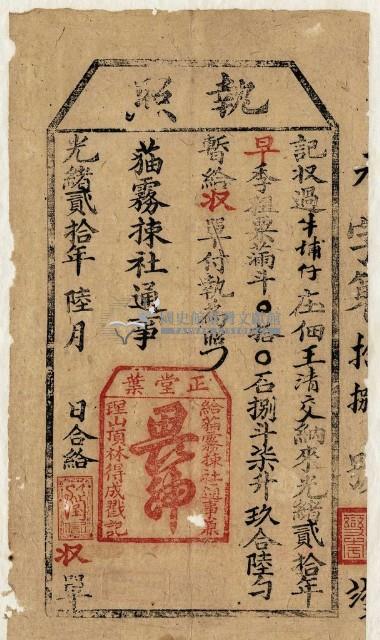 執照
記収過牛埔仔庄佃王清交納來光緒貳拾年
早季租粟滿斗〇拾〇石捌斗柒升玖合陸勺
暫給収單付執為照
貓霧捒社通事
光緒貳拾年陸月 日合給
収單
正堂葉
給貓霧捒社通事
理山頂林得成戳記
字第拾捌號
國史館臺灣文獻館